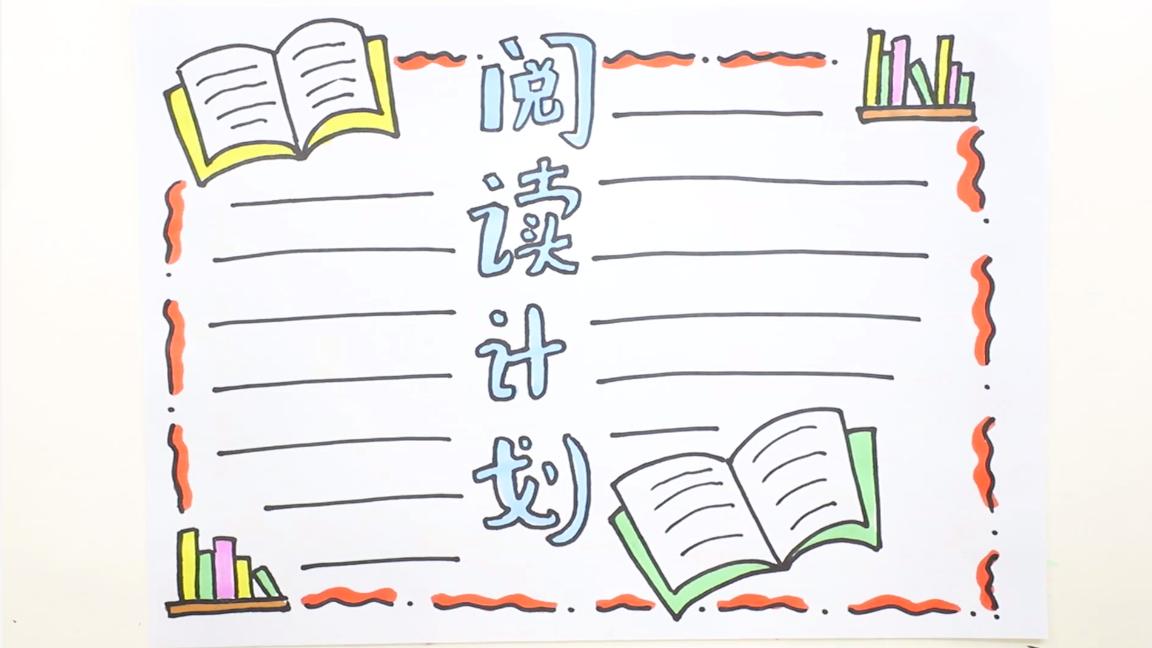 阅读计划